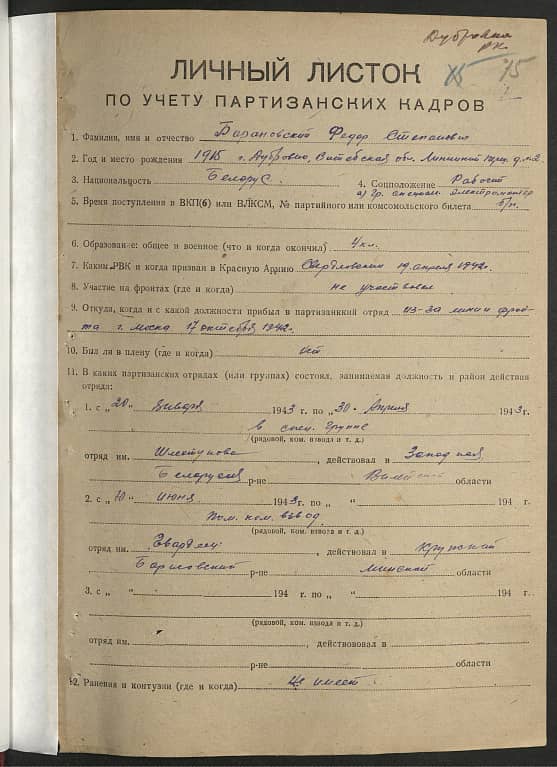 Дубровно
РК.
15 15
ЛИЧНЫЙ ЛИСТОК
ПО УЧЕТУ ПАРТИЗАНСКИХ КАДРОВ
1. Фамилия, имя и отчество Барановский Федор Степанович
2. Год и место рождения 1915 г. Дубровно, Витебская обл.
3. Национальность Белорус. 4. Соцположение Рабочий
электромонтер
5. Время поступления в ВКП(б) или ВЛКСМ, № партийного или комсомольского билета б/п.
6. Образование: общее и военное (что и когда окончил) 4 кл.
7. Каким РВК и когда призван в Красную Армию Свердловским 19 апреля 1942г.
8. Участие на фронтах (где и когда) не участвовал
9. Откуда, когда и с какой должности прибыл в партизанский отряд из-за линии фрон-
та г. Москва 17 октября 1942г.
10. Был ли в плену (где и когда) нет
11. В каких партизанских отрядах (или группах) состоял, занимаемая должность и район действия
отряда:
1. с „20" января 1943 г. по „30" Апреля 1943 г.
в спец. группе
(рядовой, ком. взвода и т. д.)
отряд им. , действовал в Западная
Белоруссия р-не области
2. с „10" июня 1943 г. по „ " 194 г.
Пом. ком. взвод.
(рядовой, ком. взвода и т. д.)
отряд им. Гвардеец , действовал в Крупский
Борисовский р-не Минской области
3. с „ " 194 г. по „ " 194 г.
(рядовой, ком. взвода и т. д.)
отряд им. , действовал в
р-не области
12. Ранения и контузии (где и когда) Не имеет